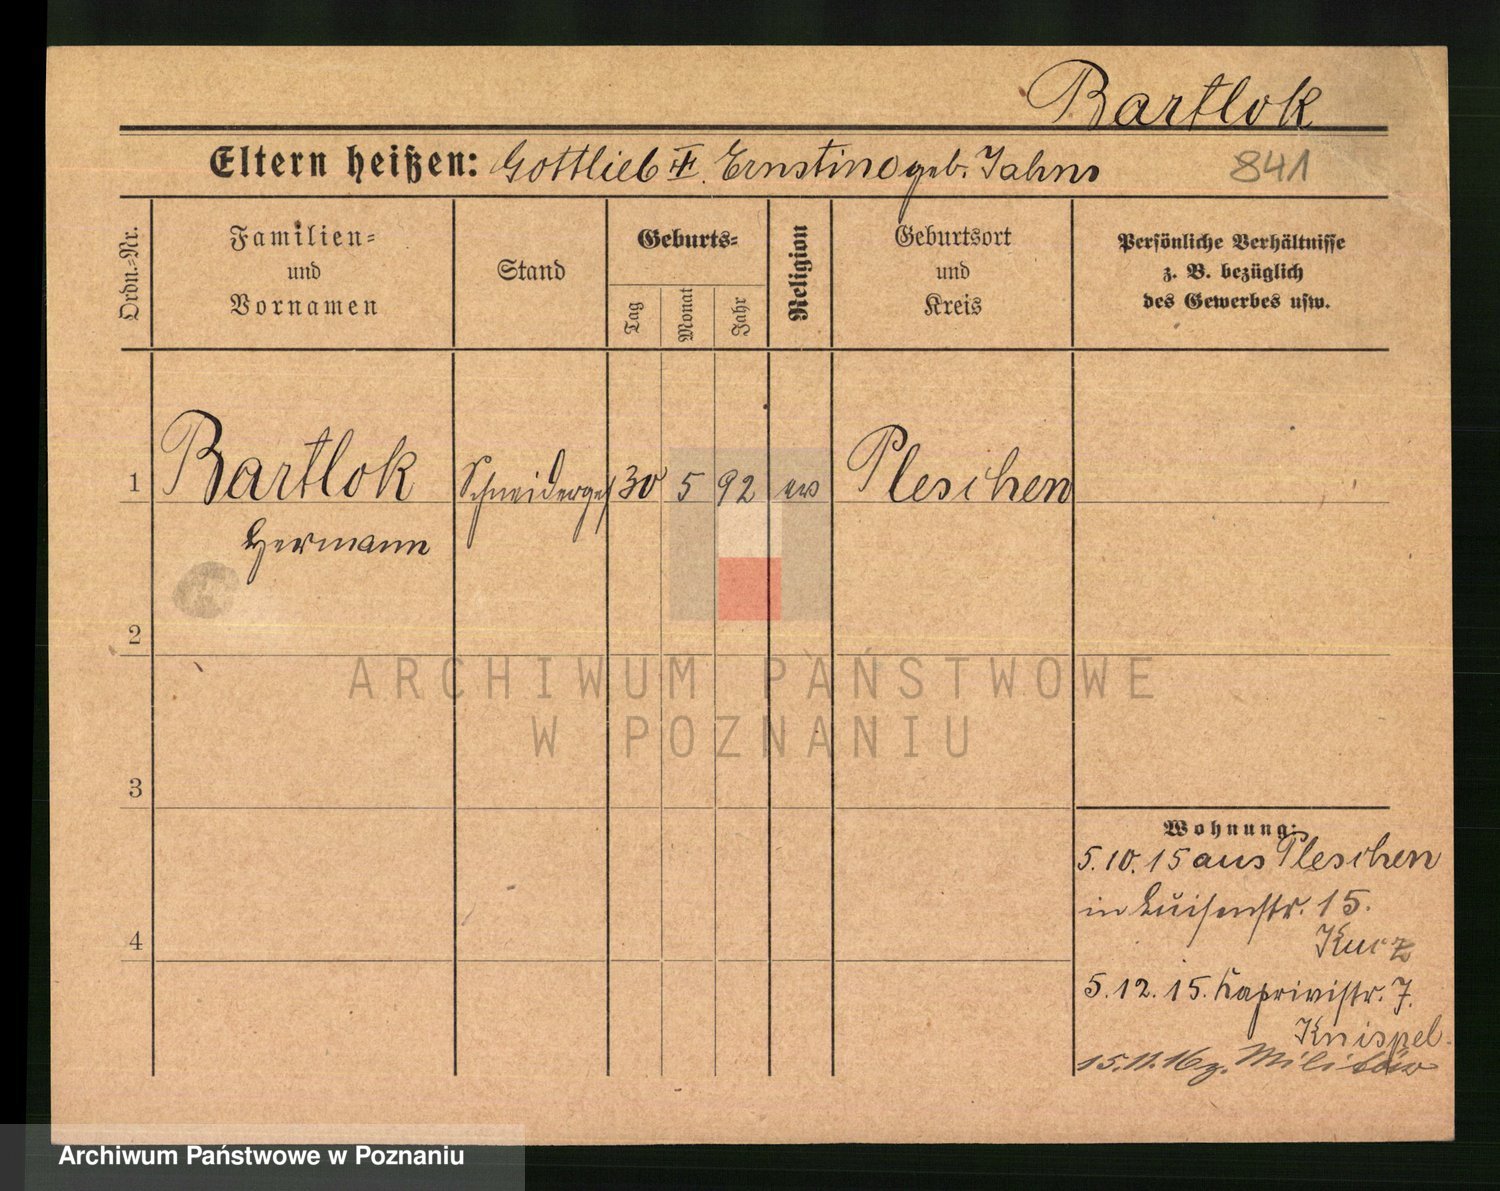 Bartlok
Eltern heißen: Gottlieb Ernstine geb. Jahns
841
Ordn.-Nr.
Familien- und Vornamen
Stand
Geburts-
Tag
Monat
Jahr
Religion
Geburtsort und Kreis
Persönliche Verhältnisse
z. B. bezüglich
des Gewerbes usw.
1 Bartlok Schneiderges 30 5 92 ev Pleschen
Hermann
2
3
4
ARCHIWUM PAŃSTWOWE
W POZNANIU
Wohnung:
5.10.15 aus Pleschen
in Luisenstr. 15.
Kurz
5.12.15. Kaprivistr. 7.
Knispel
15.11.16 z. Militär
Archiwum Państwowe w Poznaniu